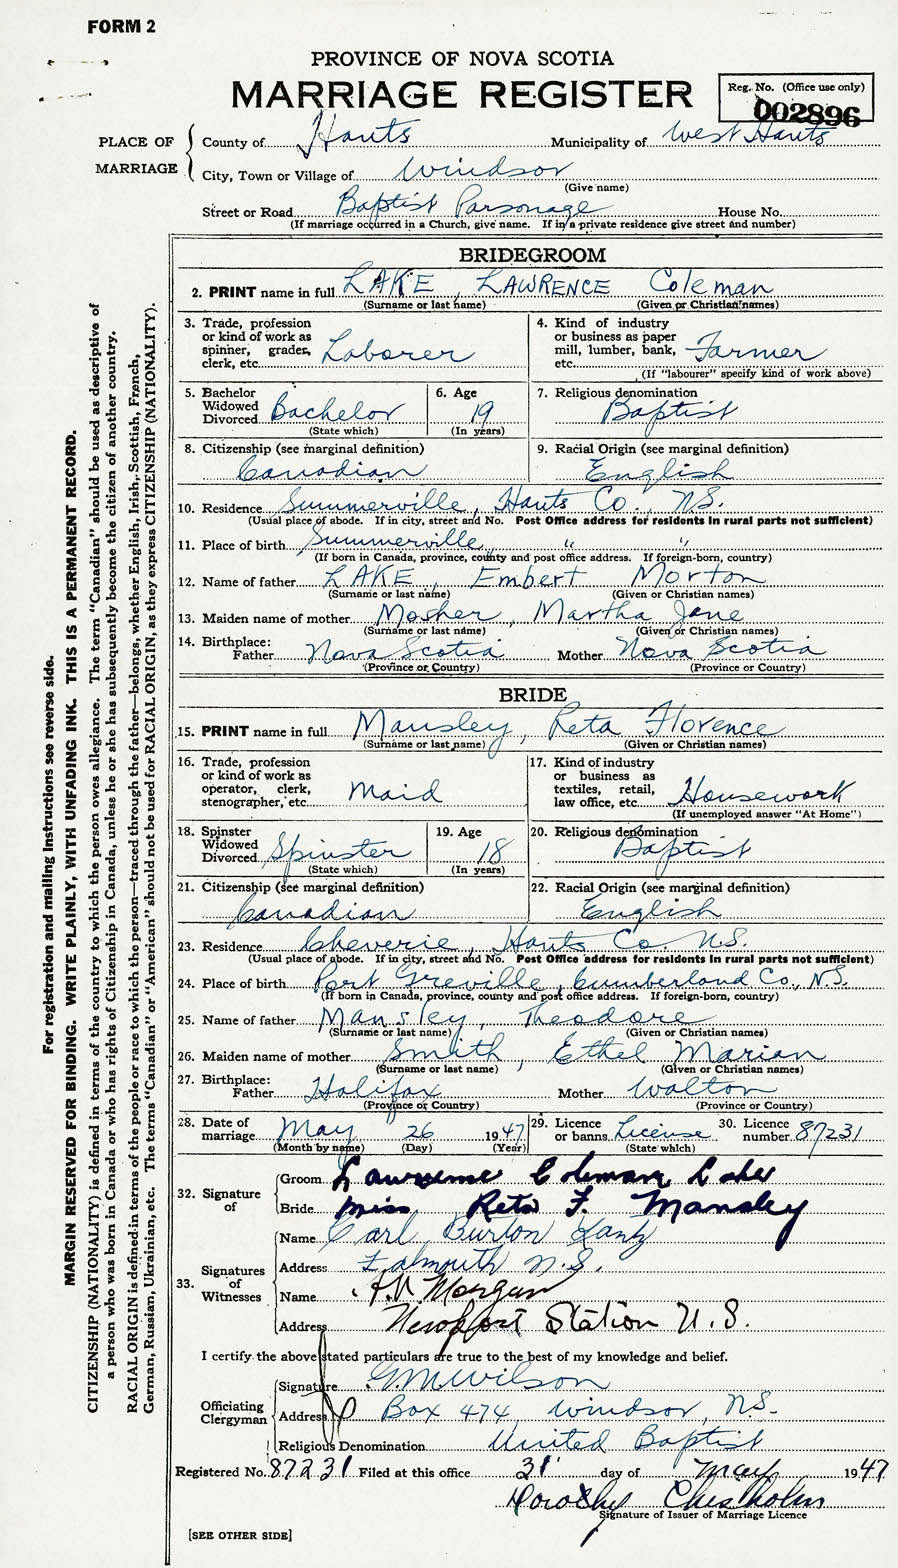 FORM 2
PROVINCE OF NOVA SCOTIA
MARRIAGE REGISTER
Reg. No. (Office use only)
002896
PLACE OF MARRIAGE
County of Hants Municipality of West Hants
City, Town or Village of Windsor
(Give name)
Street or Road Baptist Parsonage House No.
(If marriage occurred in a Church, give name. If in a private residence give street and number)
BRIDEGROOM
2. PRINT name in full LAKE, LAWRENCE Coleman
(Surname or last name) (Given or Christian names)
3. Trade, profession or kind of work as spinner, grader, clerk, etc. Laborer
4. Kind of industry or business as paper mill, lumber, bank, etc. Farmer
(If "labourer" specify kind of work above)
5. Bachelor Widowed Divorced Bachelor
(State which)
6. Age 19
(In years)
7. Religious denomination
Baptist
8. Citizenship (see marginal definition)
Canadian
9. Racial Origin (see marginal definition)
English
10. Residence Summerville, Hants Co., N.S.
(Usual place of abode. If in city, street and No. Post Office address for residents in rural parts not sufficient)
11. Place of birth Summerville, " "
(If born in Canada, province, county and post office address. If foreign-born, country)
12. Name of father LAKE, Embert Morton
(Surname or last name) (Given or Christian names)
13. Maiden name of mother Mosher, Martha Jane
(Surname or last name) (Given or Christian names)
14. Birthplace:
Father Nova Scotia Mother Nova Scotia
(Province or Country) (Province or Country)
BRIDE
15. PRINT name in full Mansley, Reta Florence
(Surname or last name) (Given or Christian names)
16. Trade, profession or kind of work as operator, clerk, stenographer, etc. Maid
17. Kind of industry or business as textiles, retail, law office, etc. Housework
(If unemployed answer "At Home")
18. Spinster Widowed Divorced Spinster
(State which)
19. Age 18
(In years)
20. Religious denomination
Baptist
21. Citizenship (see marginal definition)
Canadian
22. Racial Origin (see marginal definition)
English
23. Residence Cheverie, Hants Co. N.S.
(Usual place of abode. If in city, street and No. Post Office address for residents in rural parts not sufficient)
24. Place of birth Port Greville, Cumberland Co., N.S.
(If born in Canada, province, county and post office address. If foreign-born, country)
25. Name of father Mansley, Theodore
(Surname or last name) (Given or Christian names)
26. Maiden name of mother Smith, Ethel Marian
(Surname or last name) (Given or Christian names)
27. Birthplace:
Father Halifax Mother Walton
(Province or Country) (Province or Country)
28. Date of marriage May 26 1947
(Month by name) (Day) (Year)
29. Licence or banns License
(State which)
30. Licence number 87231
32. Signature of
Groom Lawrence Coleman Lake
Bride Miss Reta F. Mansley
33. Signatures of Witnesses
Name Carl Burton Lantz
Address Falmouth N.S.
Name Morgan
Address Newport Station N.S.
I certify the above stated particulars are true to the best of my knowledge and belief.
Officiating Clergyman
Signature G.M. Wilson
Address Box 474, Windsor, N.S.
Religious Denomination United Baptist
Registered No. 87231 Filed at this office 31 day of May 1947
Dorothy Chisholm
Signature of Issuer of Marriage Licence
[SEE OTHER SIDE]
For registration and mailing instructions see reverse side.
MARGIN RESERVED FOR BINDING. WRITE PLAINLY, WITH UNFADING INK. THIS IS A PERMANENT RECORD.
CITIZENSHIP (NATIONALITY) is defined in terms of the country to which the person owes allegiance. The term "Canadian" should be used as descriptive of
a person who was born in Canada or who has rights of Citizenship in Canada, unless he or she has subsequently become the citizen of another country.
RACIAL ORIGIN is defined in terms of the people or race to which the person—traced through the father—belongs, whether English, Irish, Scottish, French,
German, Russian, Ukrainian, etc. The terms "Canadian" or "American" should not be used for RACIAL ORIGIN, as they express CITIZENSHIP (NATIONALITY).